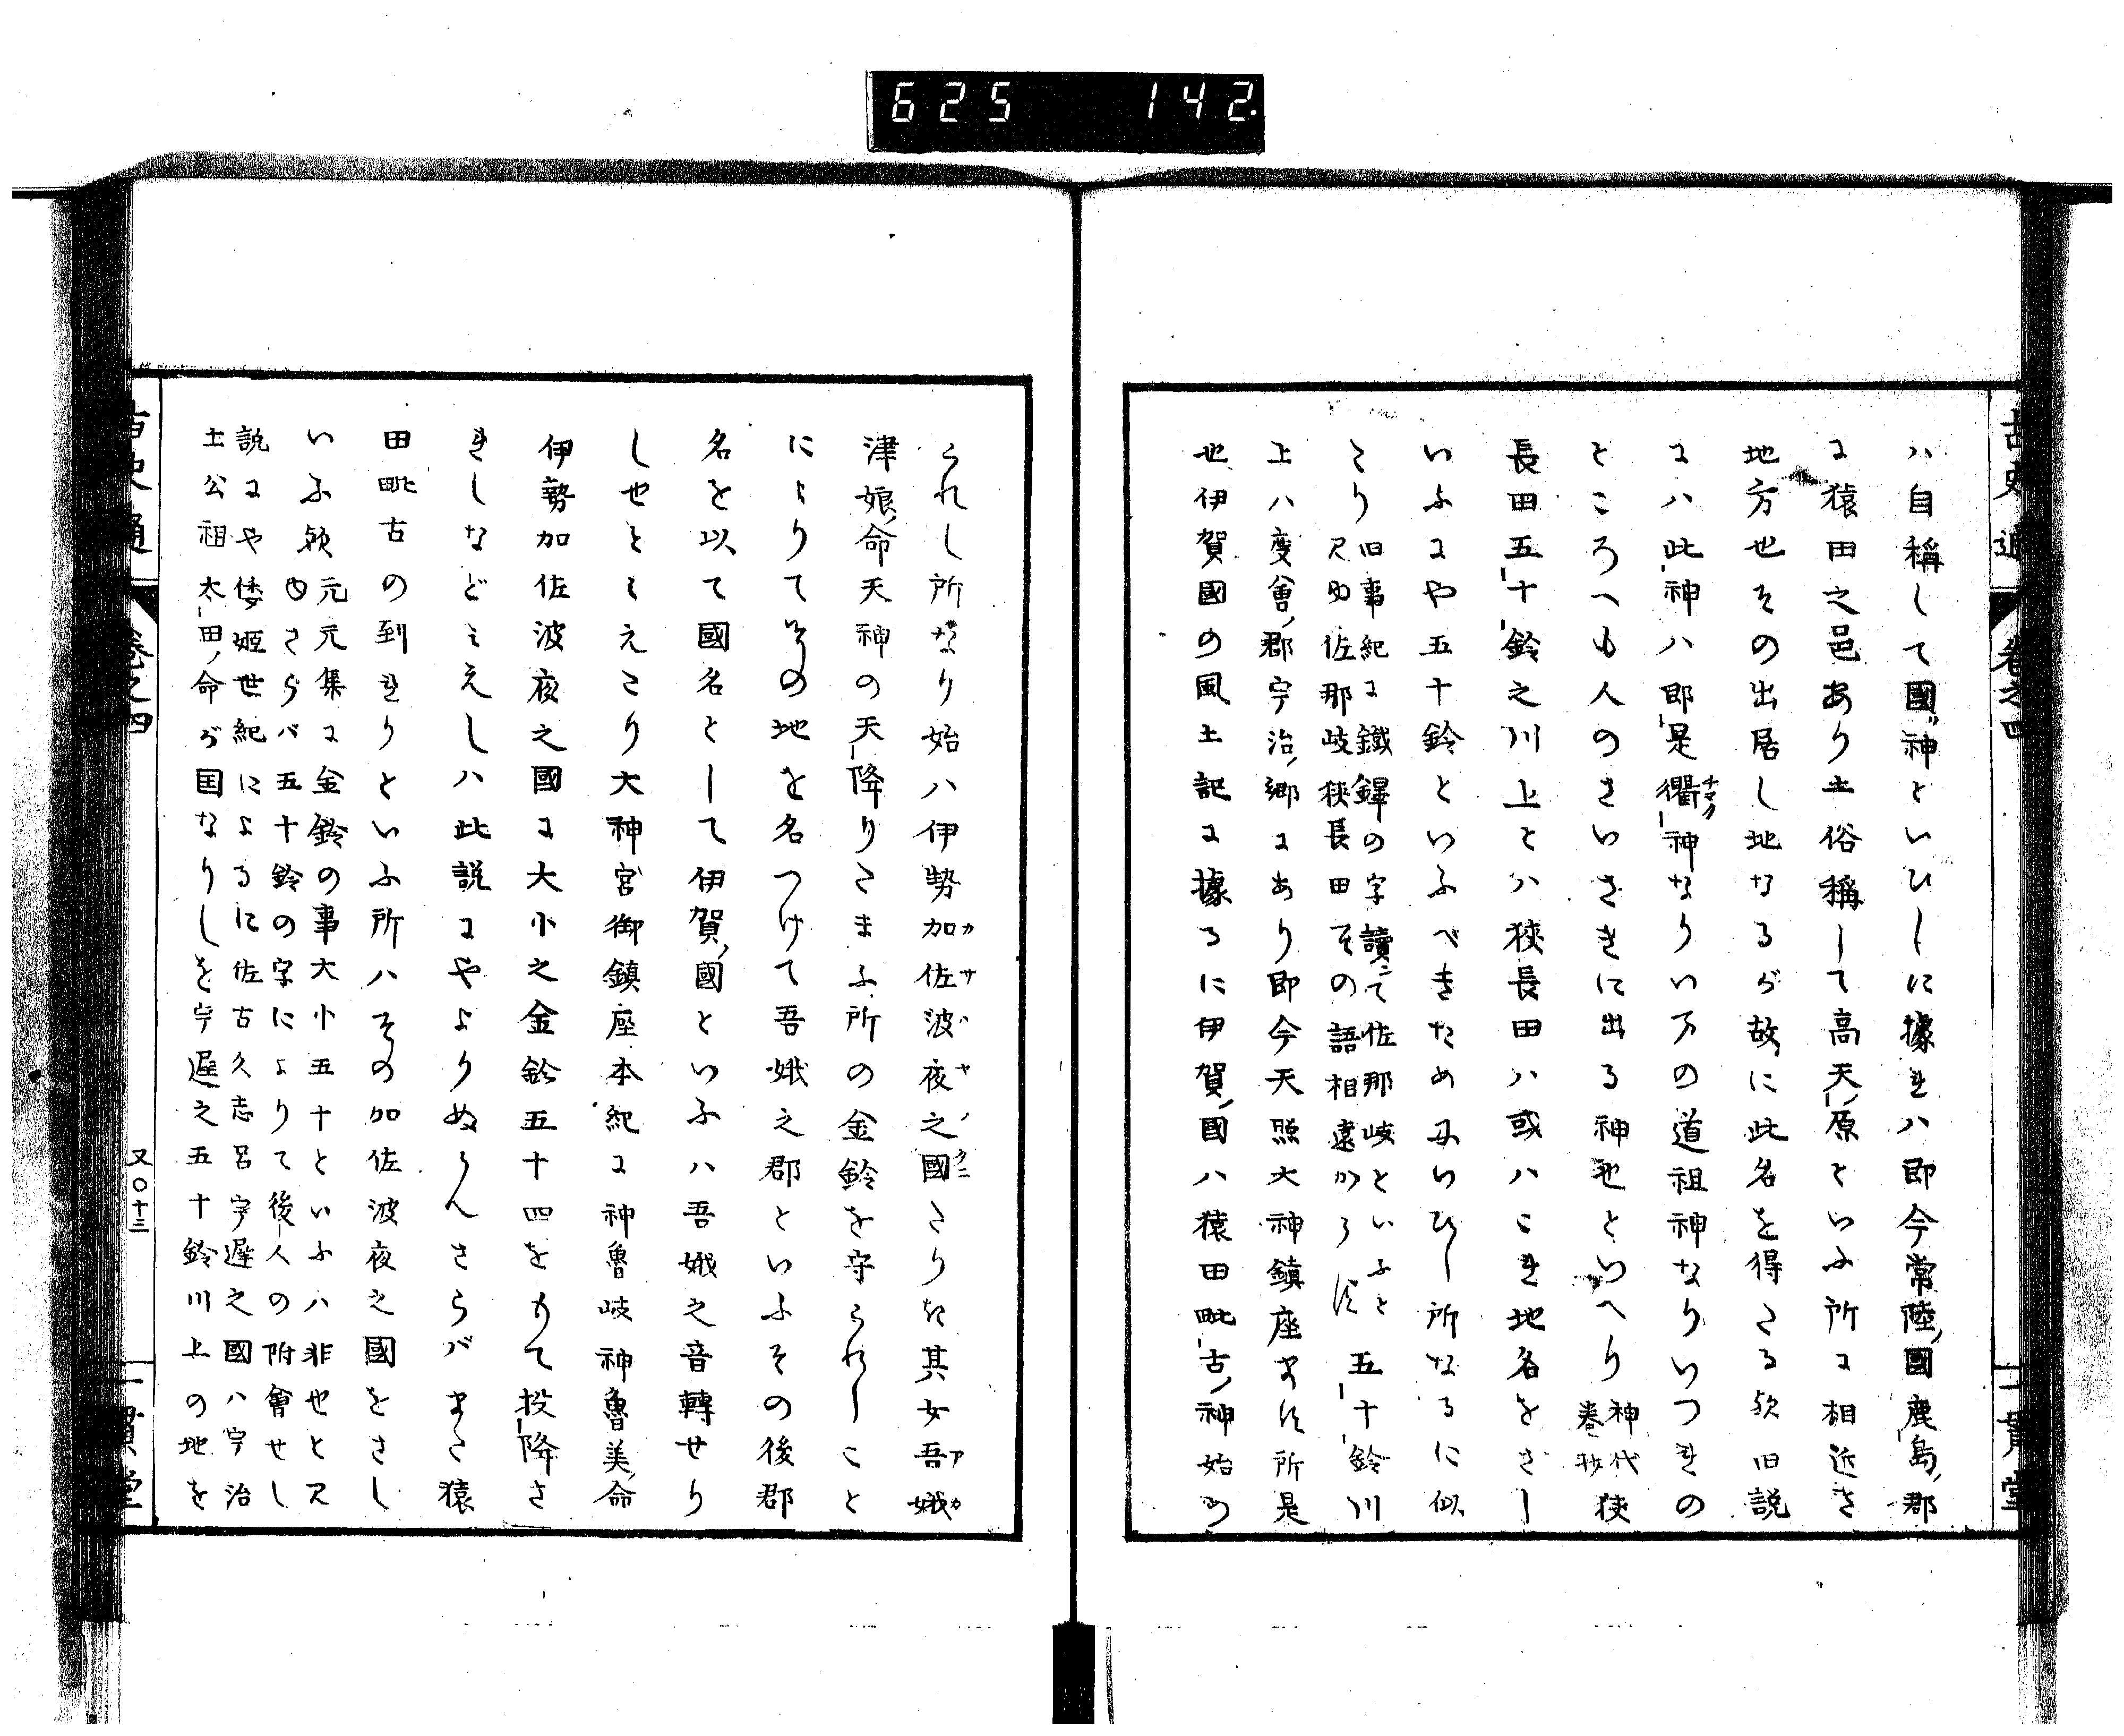 625 142.
古史通 卷之四
ハ自稱して國神といひしに據れハ即今常陸國鹿島郡
に猿田之邑あり土俗稱して高天原といふ所に相近き
地方也その出居し地なるが故に此名を得たる歟旧説
にハ此神ハ即是衢チマタ神なりいはの道祖神なりいつれの
ところへも人のさいさきに出る神也といへり神代卷抄狹
長田五十鈴之川上とハ狹長田ハ或ハこれ地名をさし
いふにや五十鈴といふべきためにいひし所なるに似
たり旧事紀に鐵鐸の字讀て佐那岐といふと
又助佐那岐狹長田その語相遠からず五十鈴川
上ハ度會郡宇治郷にあり即今天照大神鎮座ます所是
也伊賀國の風土記に據るに伊賀國ハ猿田毗古神始め
られし所なり始ハ伊勢加佐波夜之國カサハヤノクニたりき其女吾娥アカ
津娘命天神の天降りたまふ所の金鈴を守られしこと
によりてその地を名つけて吾娥之郡といふその後郡
名を以て國名として伊賀國といふハ吾娥之音轉せり
しせとみえたり大神宮御鎮座本紀に神魯岐神魯美命
伊勢加佐波夜之國に大小之金鈴五十四をもて投降さ
れしなどみえしハ此説にやよりぬらんさらバまた猿
田毗古の到れりといふ所ハその加佐波夜之國をさし
いふ歟元元集に金鈴の事大小五十といふハ非也とス
也さらバ五十鈴の字によりて後人の附會せし
説にや倭姫世紀によるに佐古久志呂宇遲之國ハ宇治
土公祖太田命が国なりしを宇遲之五十鈴川上の地を
古史通 卷之四
又〇十三
一貫堂